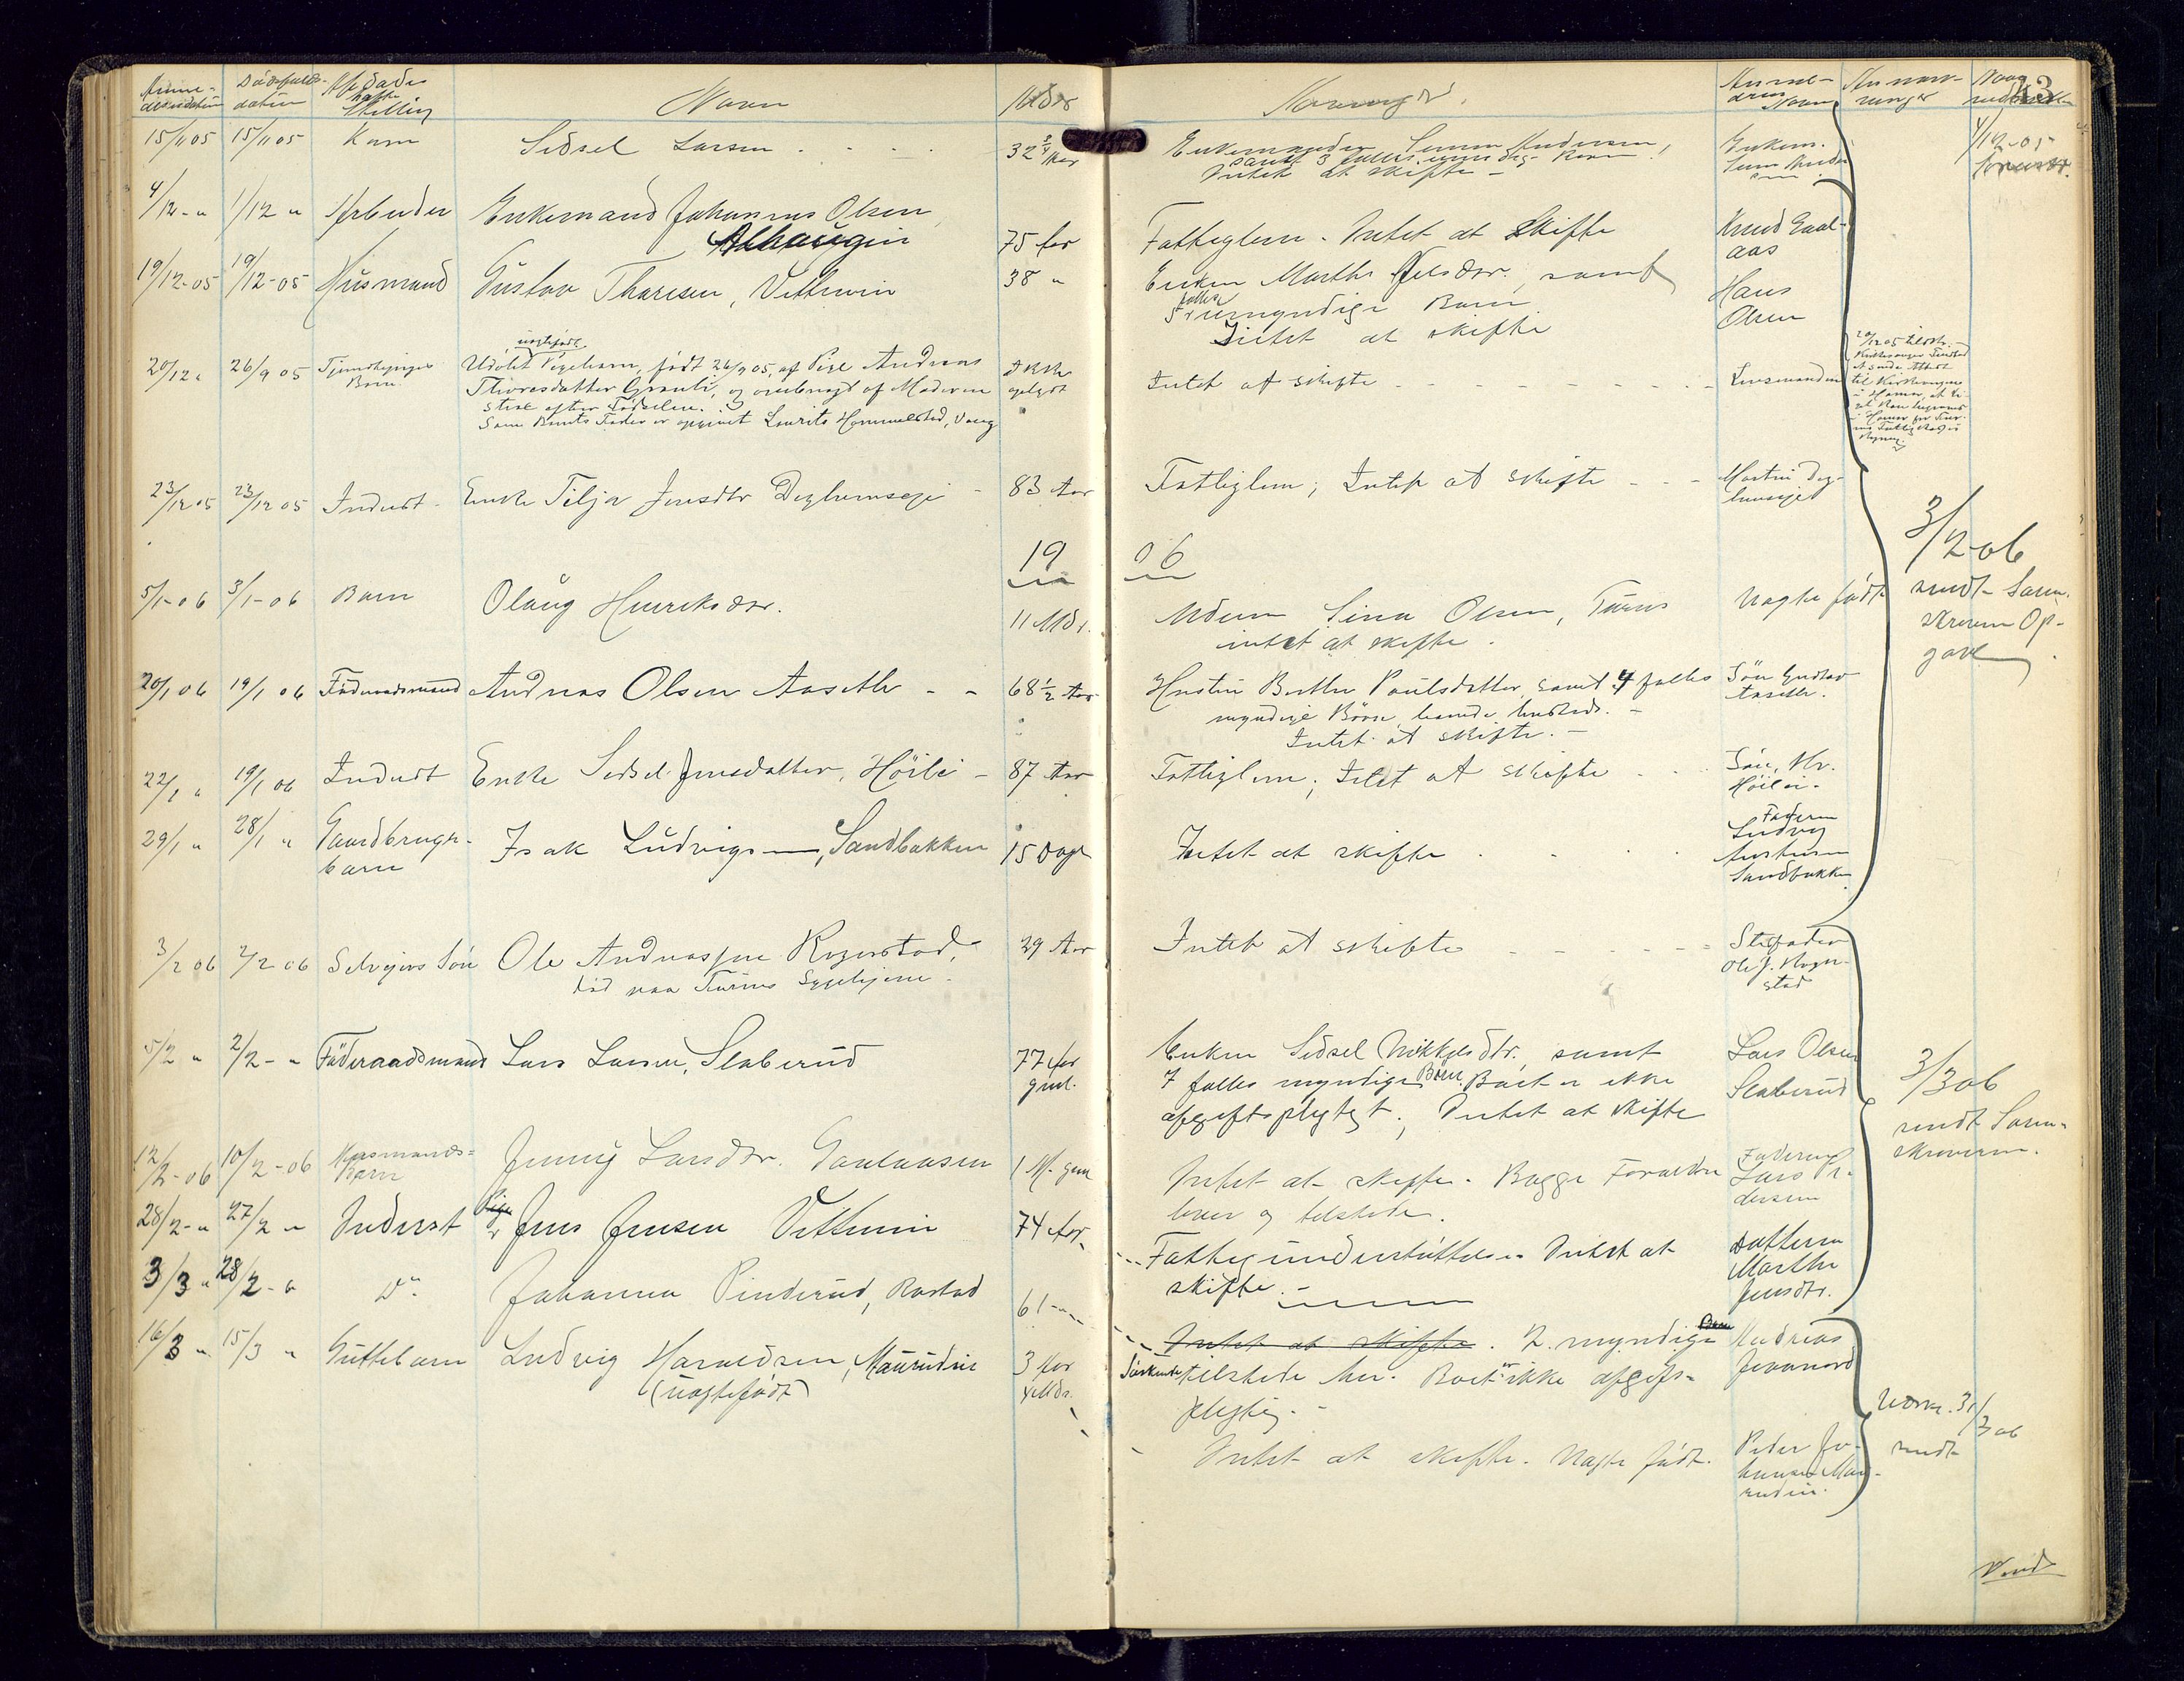 Anme-
delsesdatum
Dødsfalds-
datum
Afdødes
Stilling
Navn
Alder
Arvinger
Anmel-
derens
Navn
Anmærk-
ninger
Naar
indsendt
43
15/11 05 15/11 05 Kone Sidsel Larsen 32 3/4 Aar
Enkemanden Simen Andersen,
samt 3 fælles umyndig. Børn.
Intet at skifte -
Enkem.
Simen Ander-
sen
4/12-05
4/12 - " 1/12 " Arbeider Enkemand Johannes Olsen
Alhaugen 75 Aar
Fattiglem. Intet at Skifte
Knud Gaal-
aas
19/12-05 19/12-05 Husmand Gustav Thoresen, Vethunin 38 "
Enken Marthe Nilsdtr., samt
5 fælles umyndige Børn
Intet at skifte
Hans
Olsen
20/12 " 26/9 05 Tjenestepiges
Barn
uægtefødt
Udøbt Pigebarn, født 26/9 05, af Pige Andrena
Thoresdatter Grønli, og ombragt af Moderen
strax efter Fødselen.
Som Barnets Fader er opgivet Laurits Hommelstad, Vang
Ikke
oplyst
Intet at skifte
Lensmanden
20/12 05
23/12 05 23/12 05 Inderst Enke Silja Jensdtr Deglumseje 83 Aar
Fattiglem; Intet at skifte
Martin Deg-
lumsejet
19 06
5/1-06 3/1-06 Barn Olaug Henriksdtr. 11 Mdr.
Moderen Lina Olsen, Furnes
intet at skifte.
Uægte født
3/2 06
sendt Soren-
skriveren Op-
gave
20/1 06 19/1 06 Føderaadsmand Andreas Olsen Aasetler 68 1/2 Aar
Hustru Berthe Poulsdatter, samt 4 fælles
myndige Børn
Intet at skifte. -
Søn Gustav
Aasetler.
22/1 " 19/1 06 Inderst Enke Sidsel Jensdatter, Høili - 87 Aar
Fattiglem; Intet at skifte
Søn, Kr.
Høili.
29/1 " 28/1 " Gaardbruger-
barn
Isak Ludvigsen, Sandbakken 15 Dage
Intet at skifte
Faderen
Ludvig
Sandbakken
3/2 06 2/2 06 Selvejers Søn Ole Andreassen Rogenstad,
død paa Furnes Sygehjem. 29 Aar
Intet at skifte
Stiffader
Ole J. Rogn-
stad
5/2 " 2/2 - " Føderaadsmand Lars Larsen, Slaberud 77 Aar
gml.
Enken Sidsel Mikkelsdtr. samt
7 fælles myndige Børn. Boet er ikke
afgiftspligtigt; Intet at skifte
Lars Olsen
Slaberud
3/3 06
sendt Soren-
skriveren.
12/2-06 10/2-06 Husmands-
barn
Jenny Larsdtr. Gaalaasen 1 M. gml
Intet at skifte. Begge Forældre
lever og tilstede.
Faderen
Lars Pe-
dersen
28/2-" 27/2 " Inderst Jens Jensen Vethunin 74 Aar
Fattigunderstøttelse. Intet at
skifte. -
Datteren
Marthe
Jensdtr.
3/3 " 28/2-" Do Johanna Pinderud, Rostad 61 -
Intet at skifte. 2 myndige Børn
Søskende tilstede her. Boet er ikke afgifts-
pligtig. -
Andreas
Jevanord
16/3 " 15/3 " Guttebarn Ludvig Haraldsen, Maurudin
(uægtefødt)
3 Aar
4 Mdr.
Intet at skifte. Uægte født.
Peder Jo-
hansen Mau-
rudin.
31/3 06
sendt
Vend